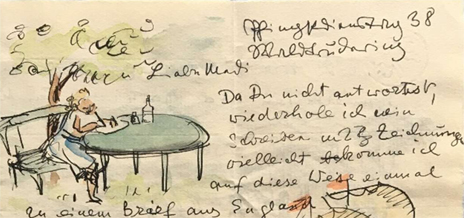 Pfingstdienstag 38
Waldtrudering
Liebe Madi
Da Du nicht antwortest,
wiederhole ich mein
mit Zeichnungen
vielleicht bekomme ich
auf diese Weise einmal
zu einem Brief aus England